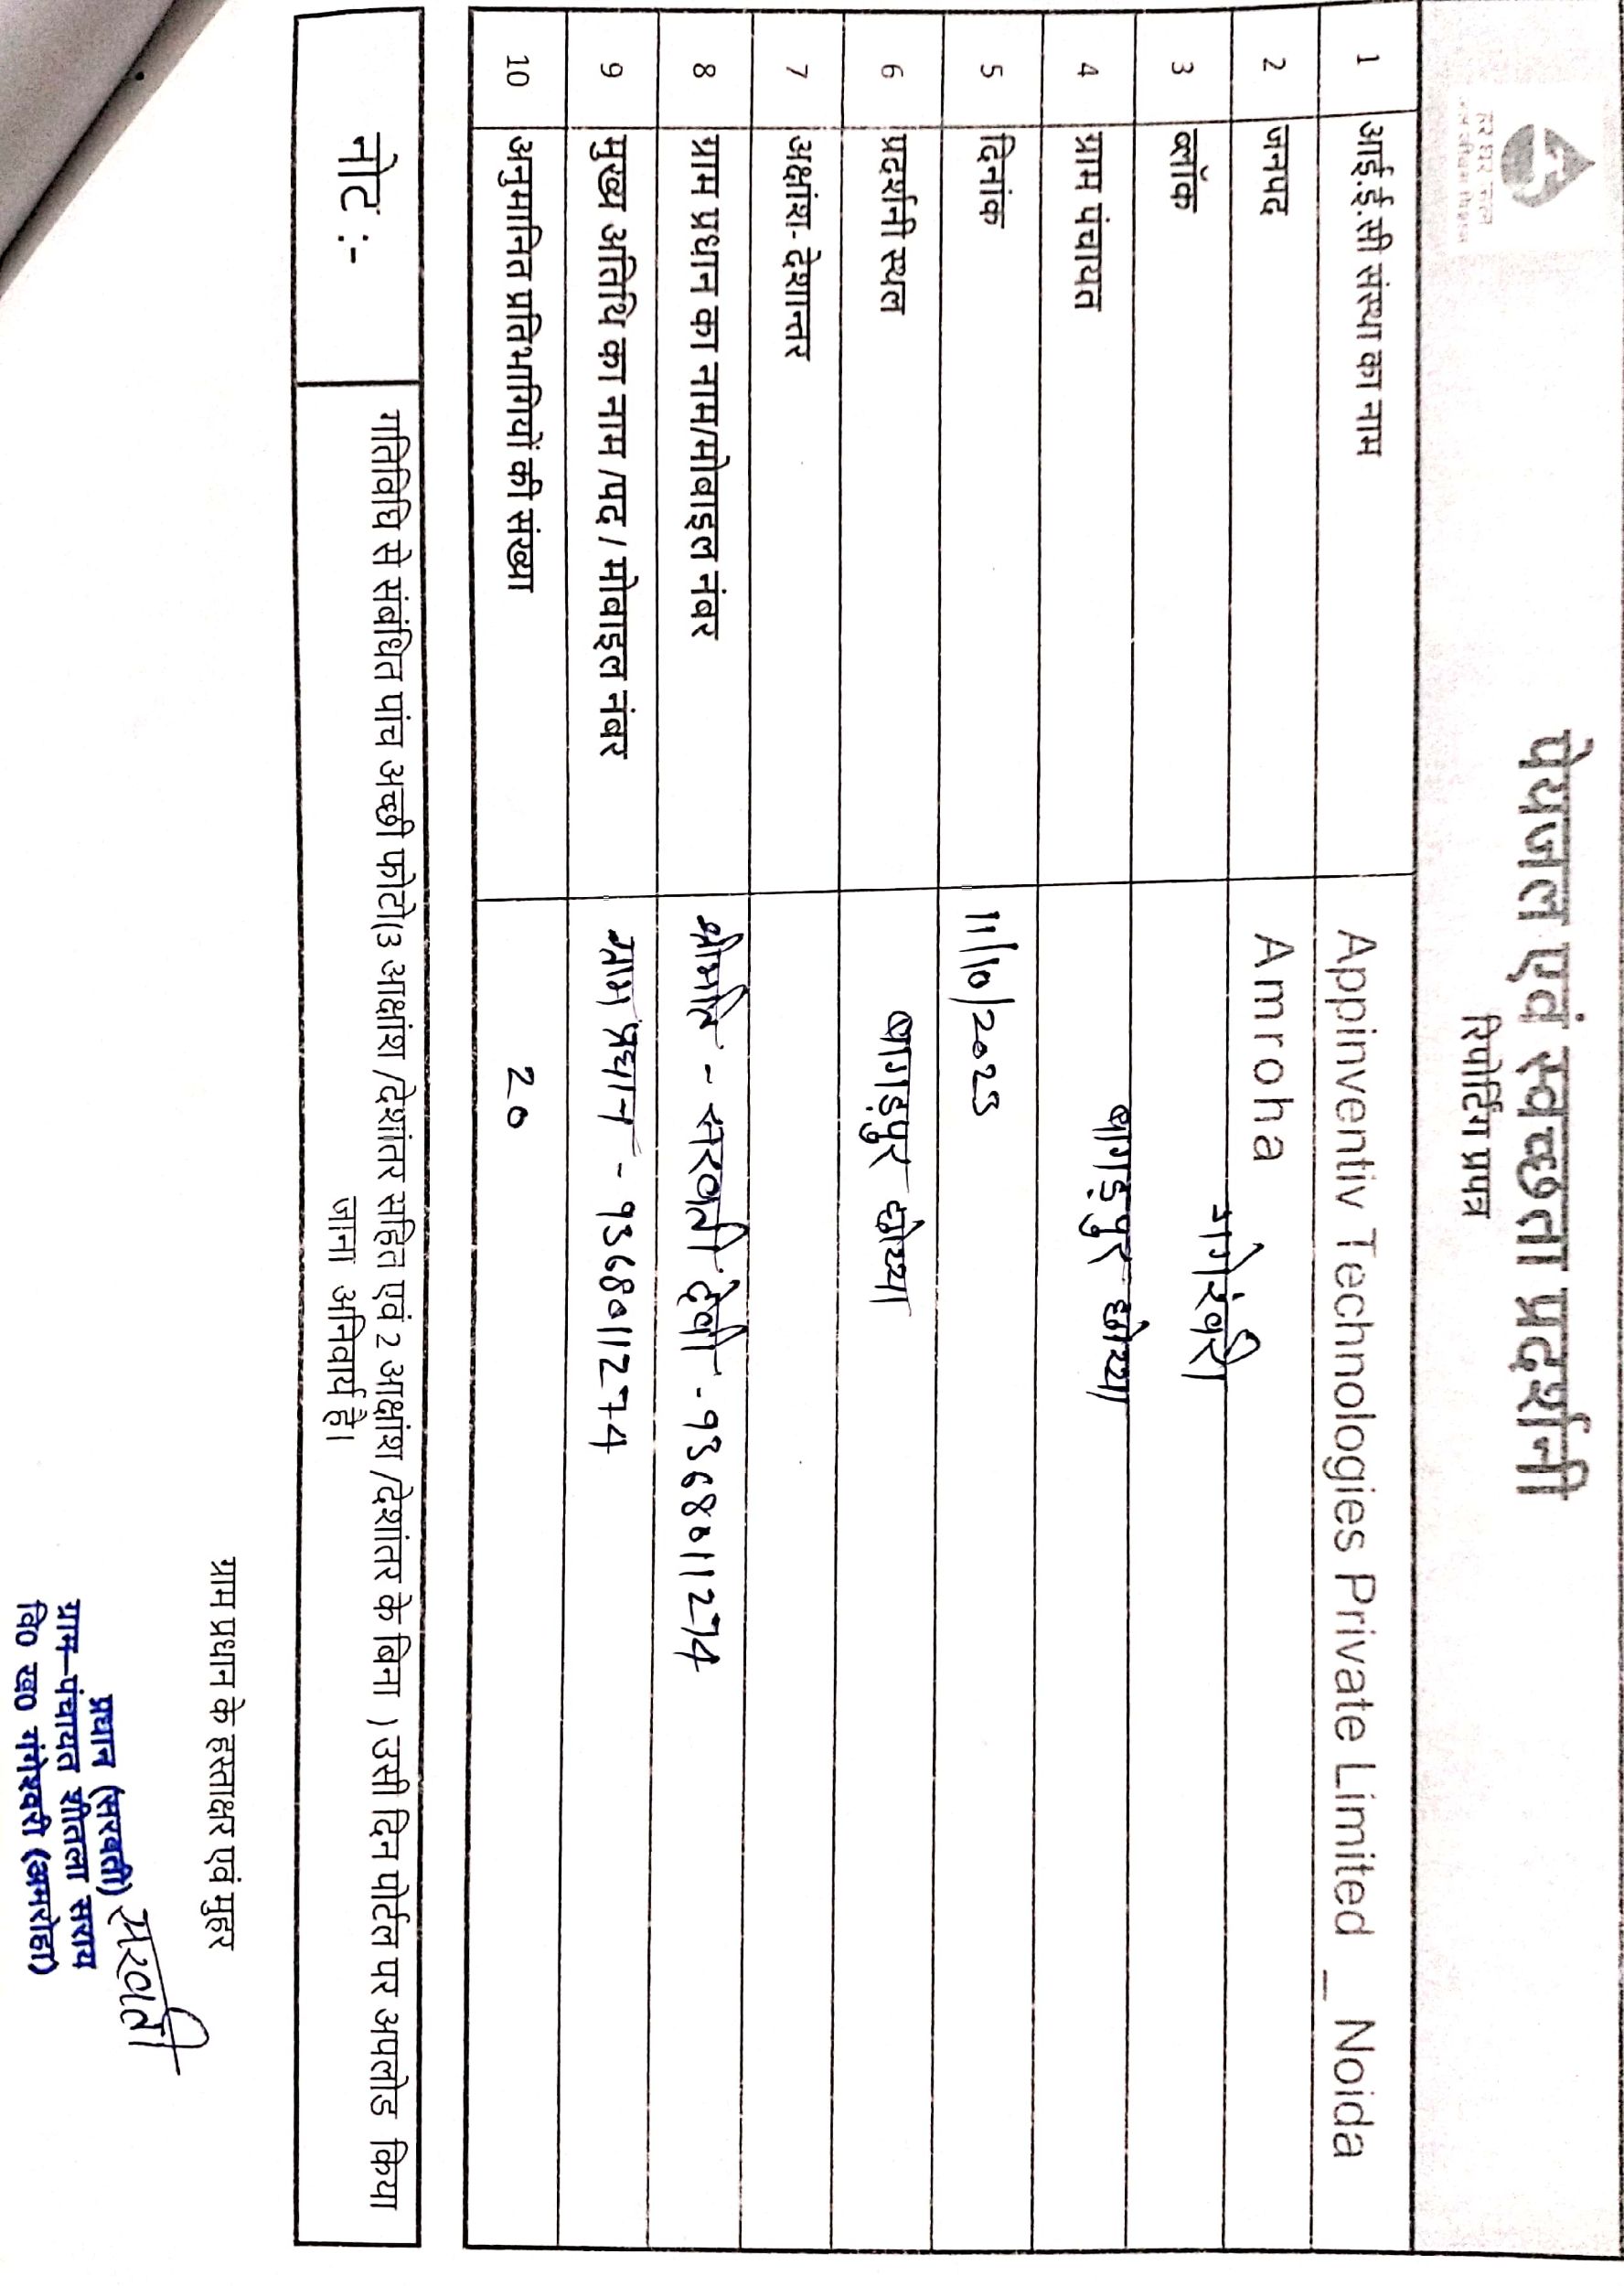 हर घर जल
जल जीवन मिशन
पेयजल एवं स्वच्छता प्रदर्शनी
रिपोर्टिंग प्रपत्र
1 आई.ई.सी संस्था का नाम Appinventiv Technologies Private Limited _ Noida
2 जनपद Amroha
3 ब्लॉक गंगेश्वरी
4 ग्राम पंचायत
5 दिनांक 11/10/2023
6 प्रदर्शनी स्थल
7 अक्षांश- देशान्तर
8 ग्राम प्रधान का नाम/मोबाइल नंबर श्रीमति - सरवती देवी - 9368011274
9 मुख्य अतिथि का नाम /पद / मोबाइल नंबर ग्राम प्रधान - 9368011274
10 अनुमानित प्रतिभागियों की संख्या 20
नोट :- गतिविधि से संबंधित पांच अच्छी फोटो(3 आक्षांश /देशांतर सहित एवं 2 आक्षांश /देशांतर के बिना ) उसी दिन पोर्टल पर अपलोड किया
जाना अनिवार्य है।
ग्राम प्रधान के हस्ताक्षर एवं मुहर
सरवती
प्रधान (सरवती)
ग्राम-पंचायत शीतला सराय
वि0 ख0 गंगेश्वरी (अमरोहा)